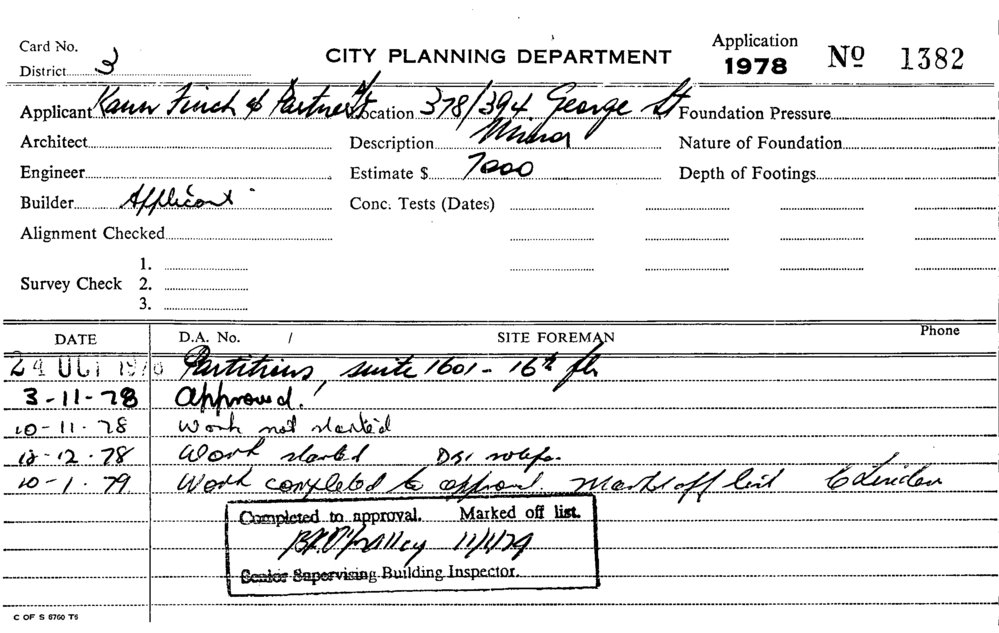 Card No.
District 3
CITY PLANNING DEPARTMENT
Application
1978
Nº 1382
Applicant Kann Finch & Partners
Location 378/394 George St
Foundation Pressure
Architect
Description Minor
Nature of Foundation
Engineer
Estimate $ 7000
Depth of Footings
Builder Applicant
Conc. Tests (Dates)
Alignment Checked
Survey Check 1.
2.
3.
DATE D.A. No. / SITE FOREMAN Phone
24 OCT 1978 Partitions, suite 1601 - 16th flr
3-11-78 Approved.
10-11-78 Work not started
18-12-78 Work started
10-1-79. Work completed to approval. Marked off list
Completed to approval. Marked off list.
11/1/79
Senior Supervising Building Inspector.
C OF S 6760 T6